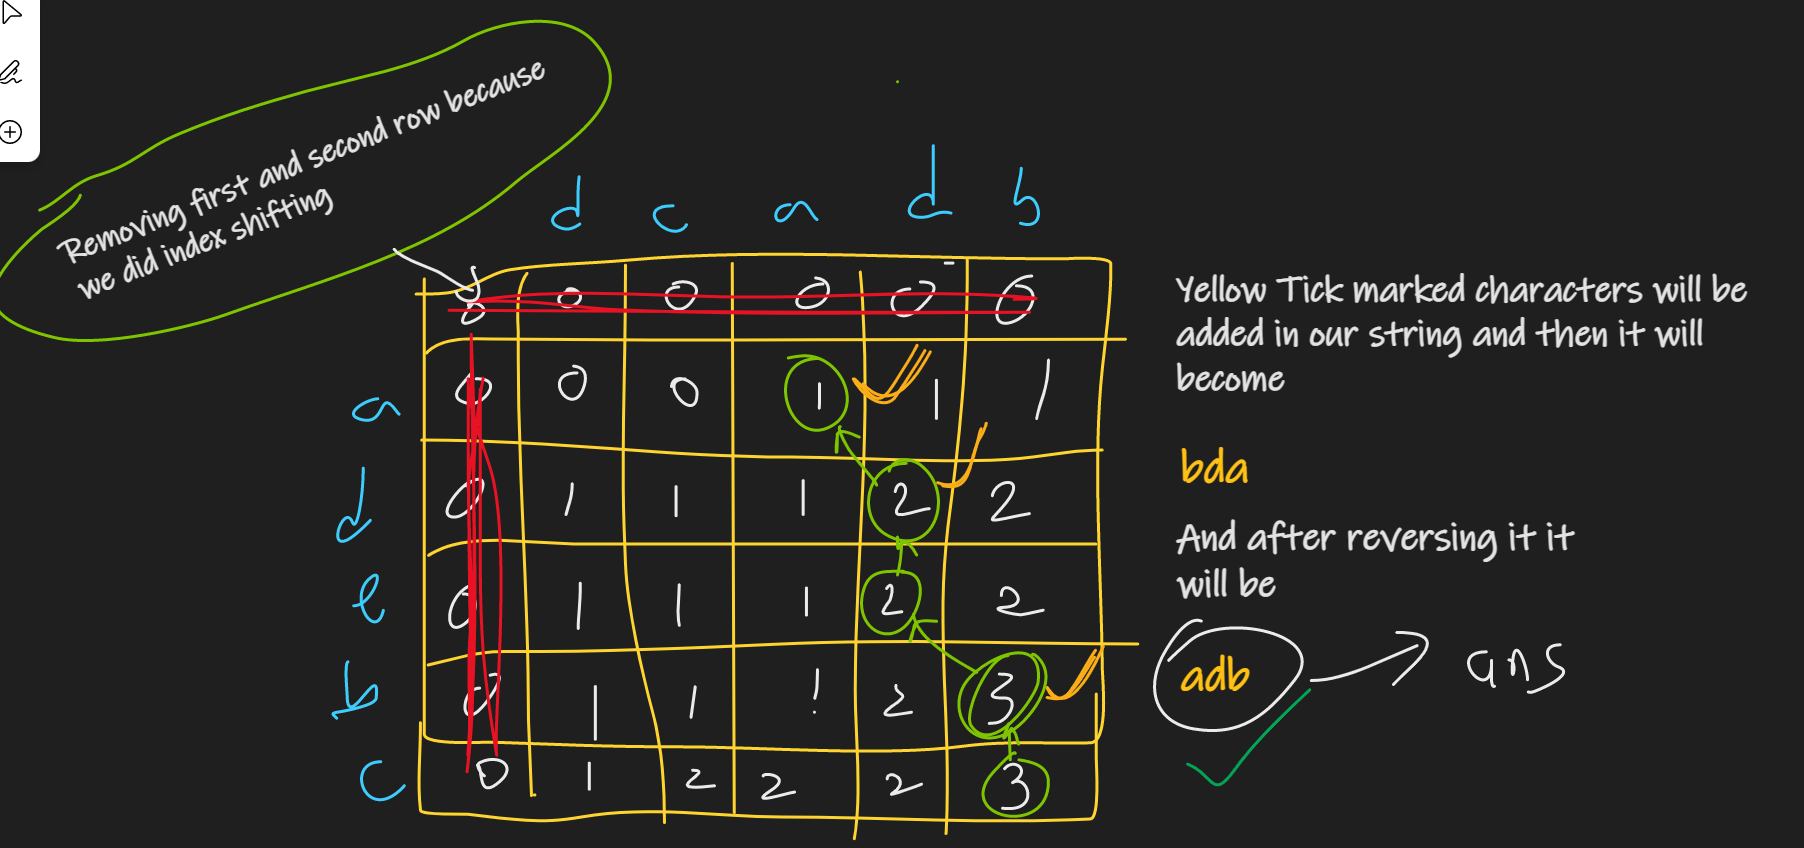 Removing first and second row because
we did index shifting
d c a d b
0 0 0 0 0 0
a 0 0 0 1 1 1
d 0 1 1 1 2 2
e 0 1 1 1 2 2
b 0 1 1 1 2 3
c 0 1 2 2 2 3
Yellow Tick marked characters will be
added in our string and then it will
become
bda
And after reversing it it
will be
adb
ans